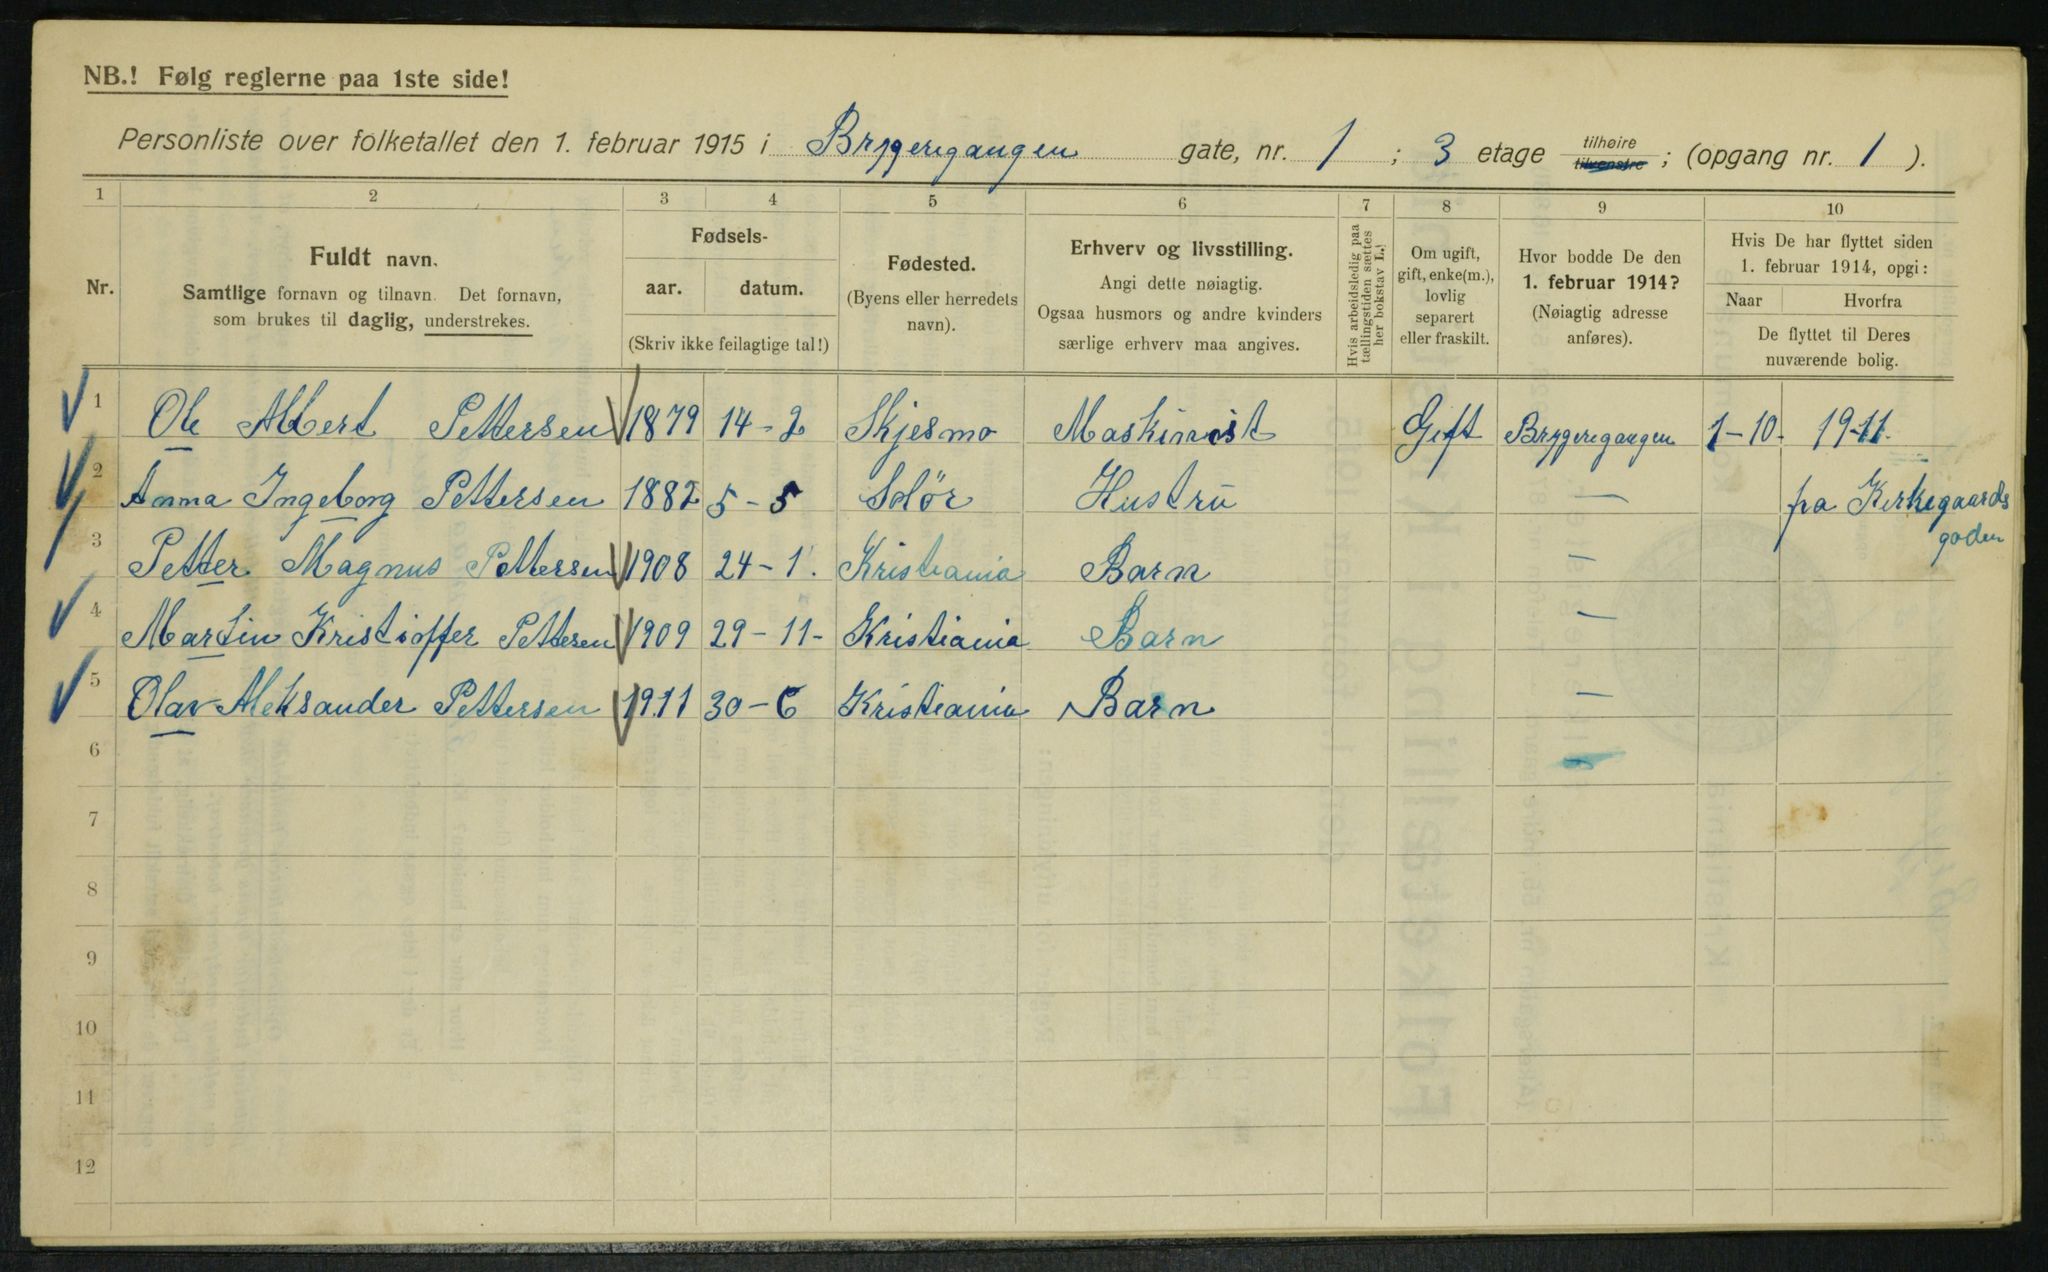 NB.! Følg reglerne paa 1ste side!
Personliste over folketallet den 1. februar 1915 i Bryggeregangen gate, nr. 1 ; 3 etage tilhøire tilvenstre ; (opgang nr. 1 ).
1 2 3 4 5 6 7 8 9 10
Nr.
Fuldt navn.
Samtlige fornavn og tilnavn. Det fornavn,
som brukes til daglig, understrekes.
Fødsels-
aar. datum.
(Skriv ikke feilagtige tal!)
Fødested.
(Byens eller herredets
navn).
Erhverv og livsstilling.
Angi dette nøiagtig.
Ogsaa husmors og andre kvinders
særlige erhverv maa angives.
Hvis arbeidsledig paa
tællingstiden sættes
her bokstav L.!
Om ugift,
gift, enke(m.),
lovlig
separert
eller fraskilt.
Hvor bodde De den
1. februar 1914?
(Nøiagtig adresse
anføres).
Hvis De har flyttet siden
1. februar 1914, opgi:
Naar Hvorfra
De flyttet til Deres
nuværende bolig.
1 Ole Albert Pettersen 1879 14-2 Skjesmo Maskinist Gift Bryggeregangen 1-10- 19-11-
2 Anna Ingeborg Pettersen 1882 5-5 Solör Hustru — fra Kirkegaards
gaden
3 Petter Magnus Pettersen 1908 24-1. Kristiania Barn —
4 Martin Kristioffer Pettersen 1909 29-11- Kristiania Barn —
5 Olav Aleksander Pettersen 1911 30-6 Kristiania Barn —
6
7
8
9
10
11
12